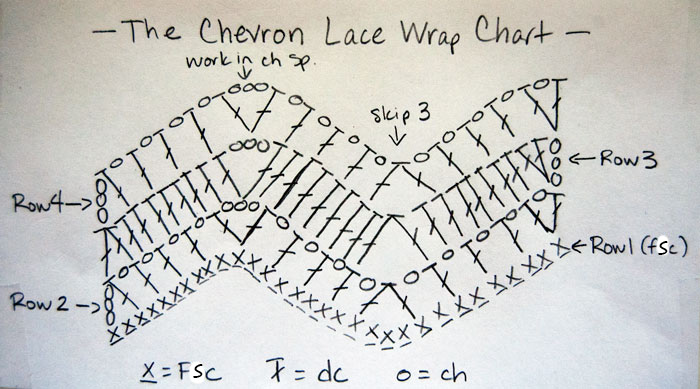 - The Chevron Lace Wrap Chart -
work in ch sp.
skip 3
Row 4
Row 3
Row 1 (fsc)
Row 2
x = Fsc T = dc o = ch